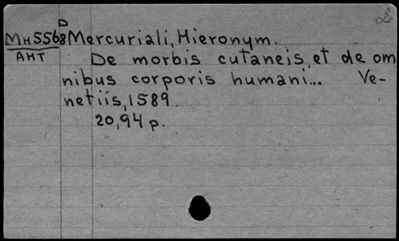 D
MH5568 Mercuriali, Hieronym.
AHT De morbis cutaneis, et de om
nibus corporis humani... Ve-
netiis, 1589.
20,94 p.